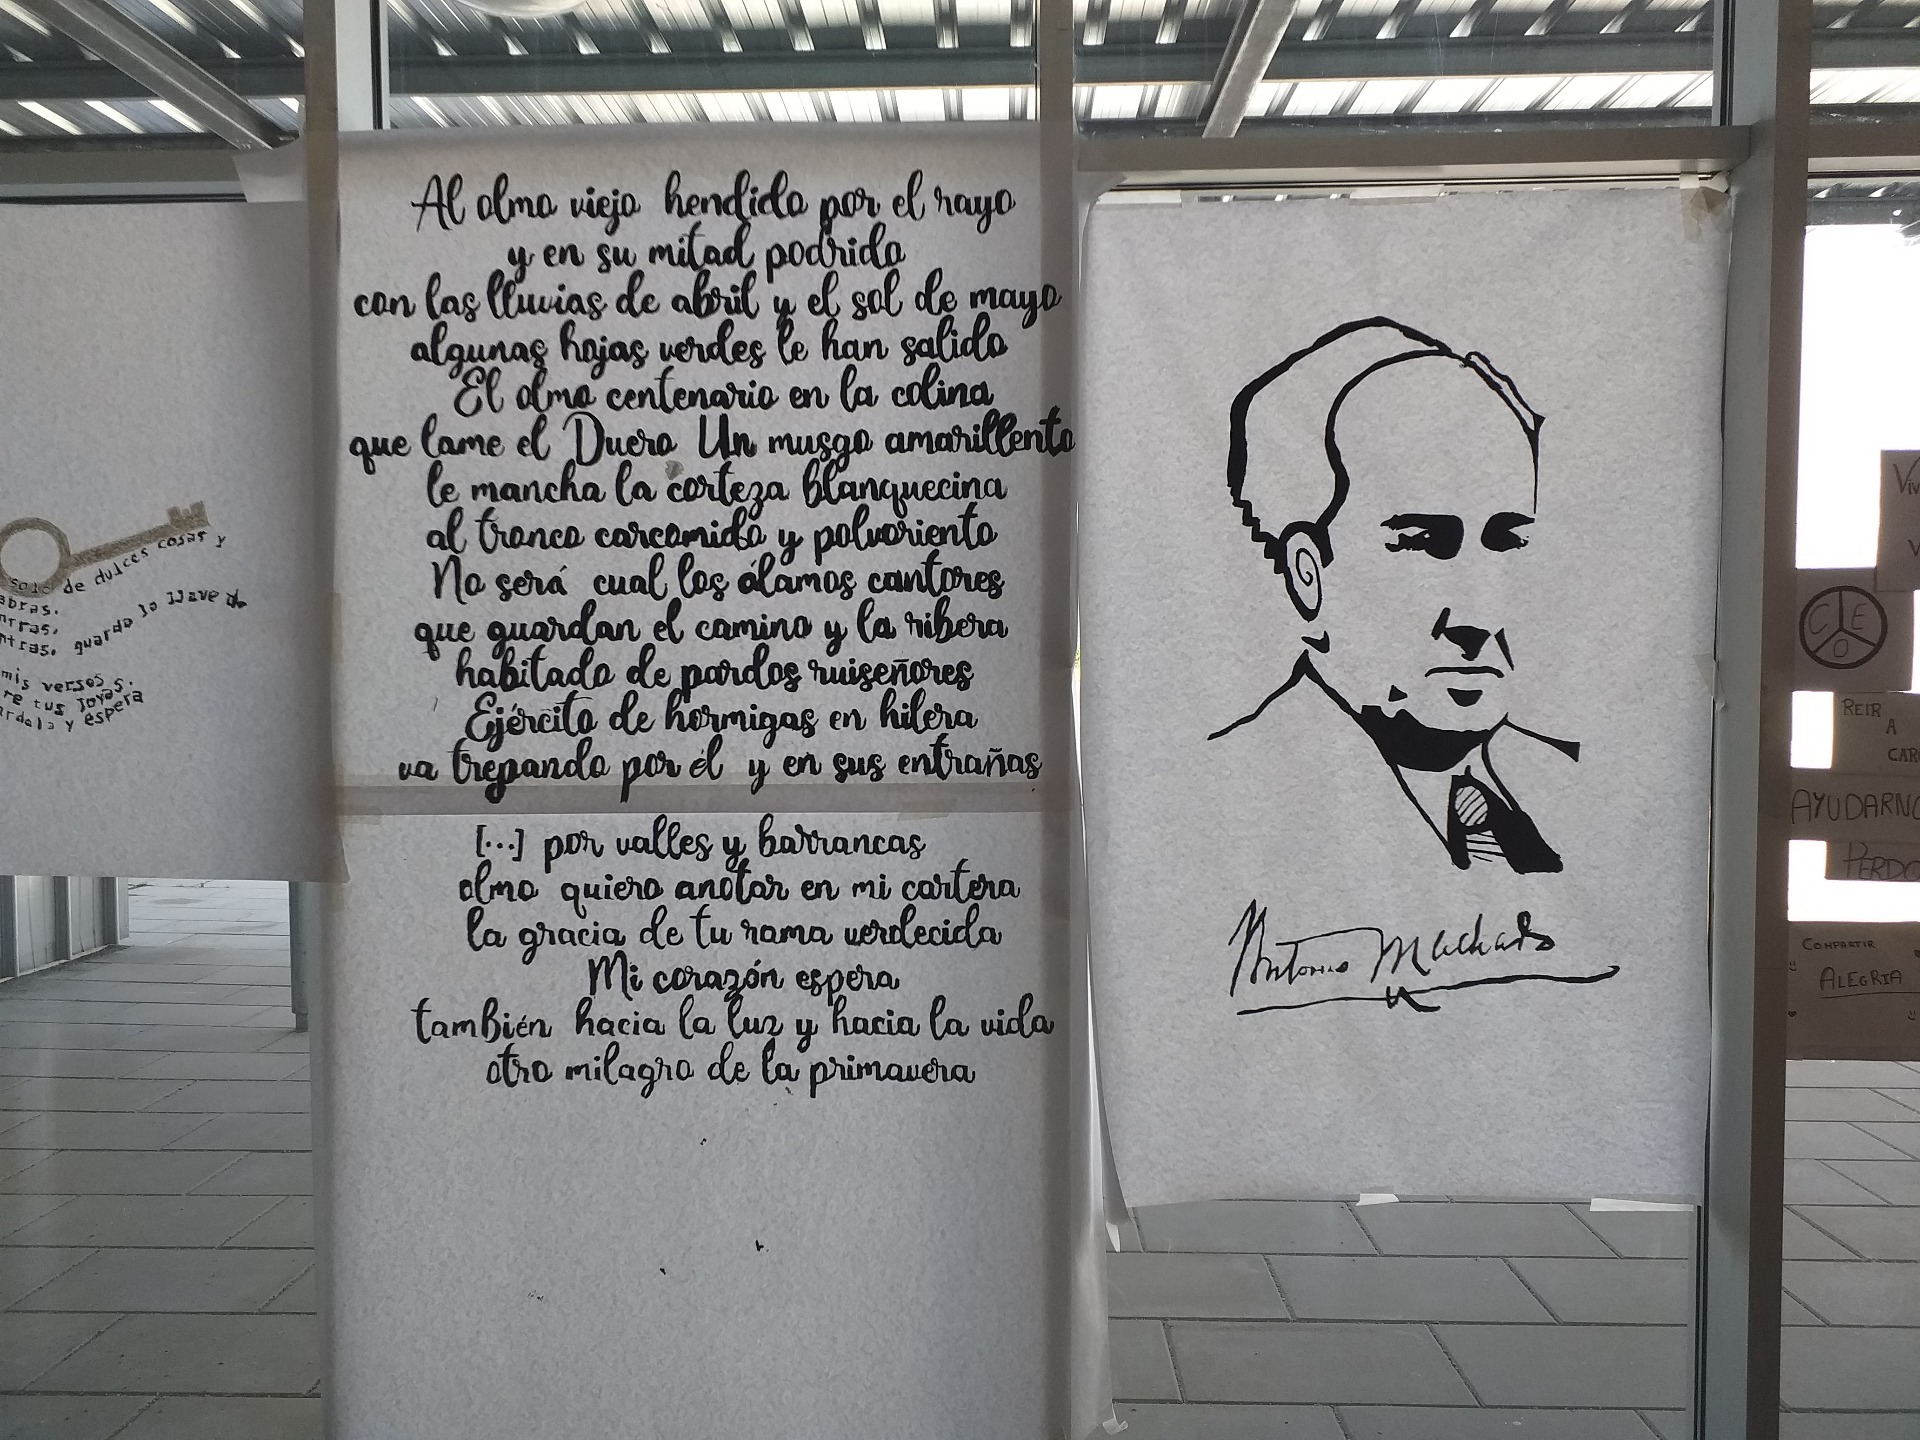 Al olmo viejo hendido por el rayo
y en su mitad podrido
con las lluvias de abril y el sol de mayo
algunas hojas verdes le han salido
El olmo centenario en la colina
que lame el Duero Un musgo amarillento
le mancha la corteza blanquecina
al tronco carcomido y polvoriento
No será cual los álamos cantores
que guardan el camino y la ribera
habitado de pardos ruiseñores
Ejército de hormigas en hilera
va trepando por él y en sus entrañas
[...] por valles y barrancas
olmo quiero anotar en mi cartera
la gracia de tu rama verdecida
Mi corazón espera
también hacia la luz y hacia la vida
otro milagro de la primavera
Antonio Machado
de dulces cosas y
guarda la llave de
mis versos.
tus joyas.
y espera
C E
O
REIR
A
COMPARTIR
ALEGRIA